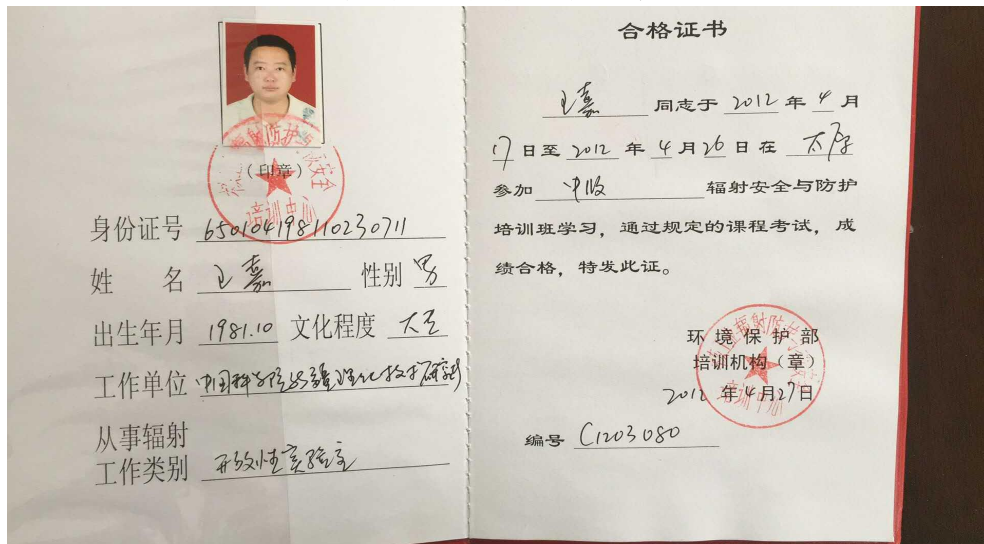 （印章）
培训中心
身份证号 650104198110230711
姓 名 王嘉 性别 男
出生年月 1981.10 文化程度 大专
工作单位 中国科学院新疆理化技术研究所
从事辐射
工作类别 放射性实验室
合格证书
王嘉 同志于 2012 年 4 月
17 日至 2012 年 4 月 26 日在 太原
参加 中级 辐射安全与防护
培训班学习，通过规定的课程考试，成
绩合格，特发此证。
环境保护部
培训机构（章）
2012 年 4 月 27 日
培训中心
编号 C1203080